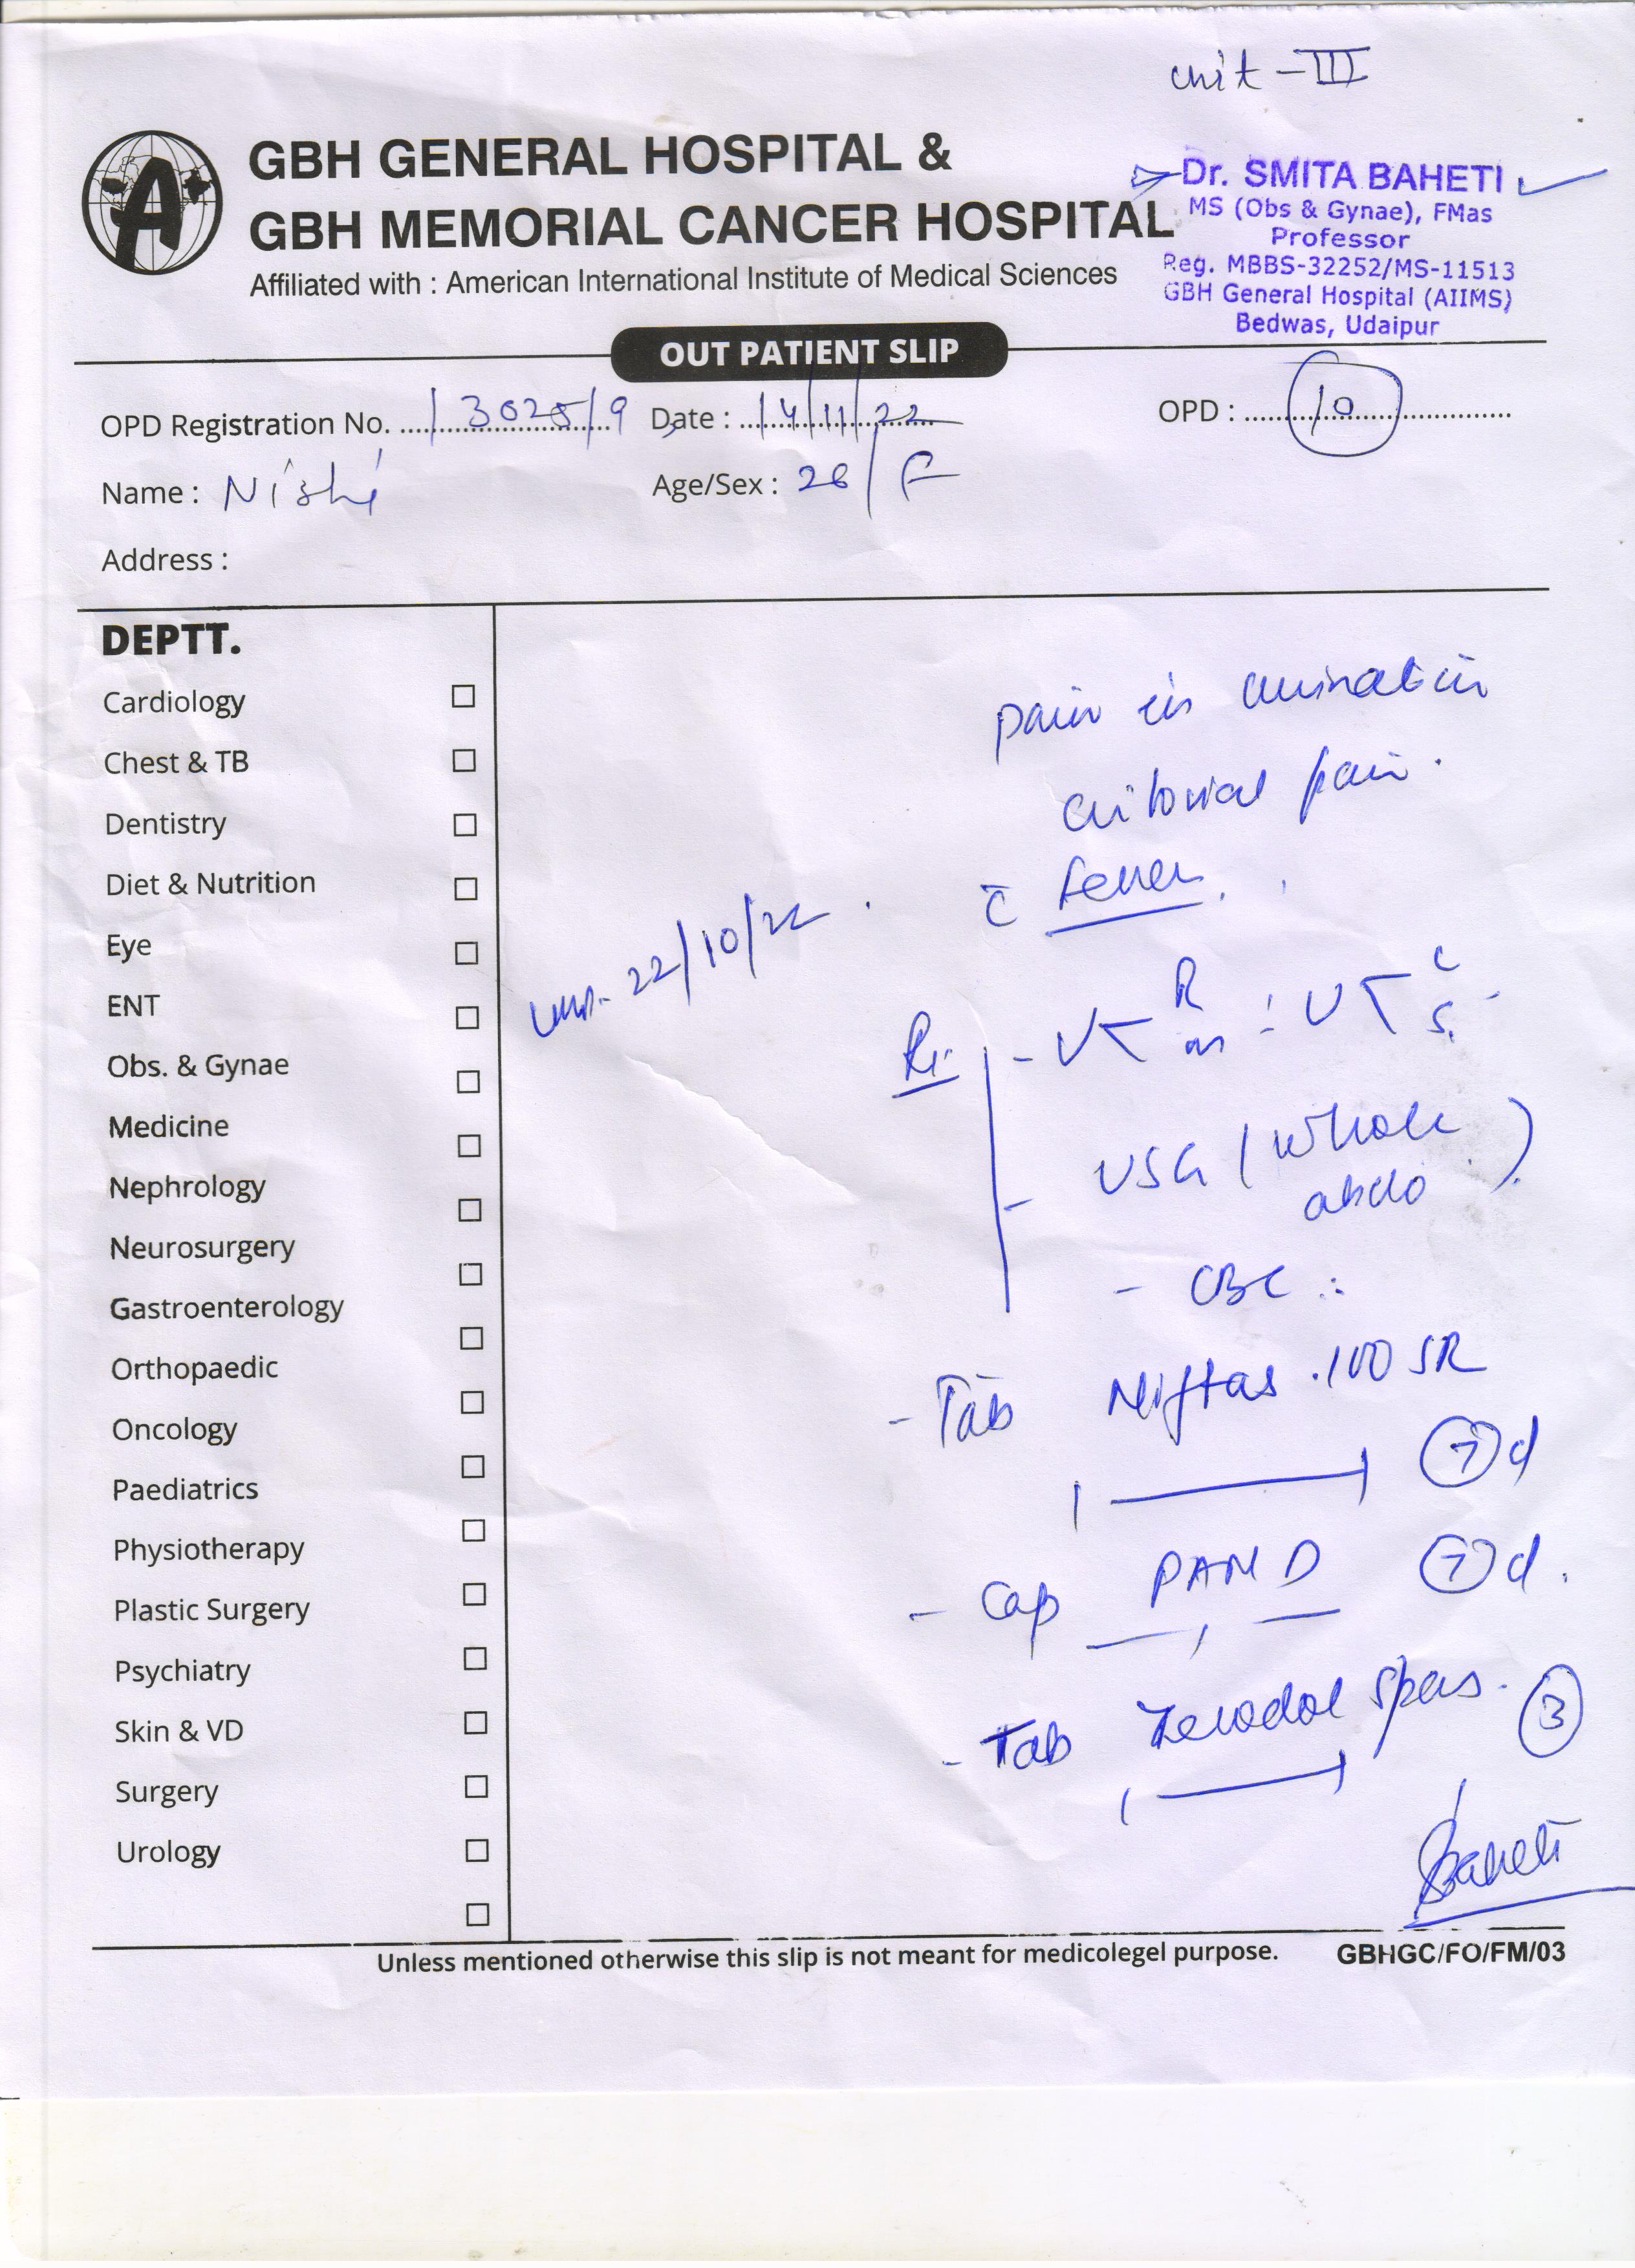 unit - III
GBH GENERAL HOSPITAL &
GBH MEMORIAL CANCER HOSPITAL
Affiliated with : American International Institute of Medical Sciences
Dr. SMITA BAHETI
MS (Obs & Gynae), FMas
Professor
Reg. MBBS-32252/MS-11513
GBH General Hospital (AIIMS)
Bedwas, Udaipur
OUT PATIENT SLIP
OPD Registration No. 1302519 Date : 14/11/22 OPD : 10
Name : Nishi Age/Sex : 26/F
Address :
DEPTT.
Cardiology
Chest & TB
Dentistry
Diet & Nutrition
Eye
ENT
Obs. & Gynae
Medicine
Nephrology
Neurosurgery
Gastroenterology
Orthopaedic
Oncology
Paediatrics
Physiotherapy
Plastic Surgery
Psychiatry
Skin & VD
Surgery
Urology
pain in urination
pain.
c̄ fever.
Lmp- 22/10/22
- U R/m : U C/S
USG (whole abdo)
- CBC
- Tab Niftas 100 SR
1 — 1 7 d
- Cap PAN D 7 d.
- Tab Zerodol spas. 3
1 — 1
SBaheti
Unless mentioned otherwise this slip is not meant for medicolegel purpose. GBHGC/FO/FM/03